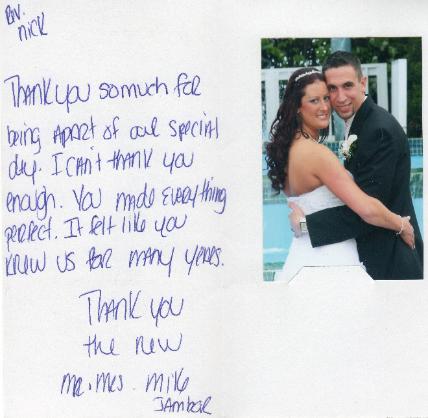 Rev.
Nick
Thank you so much for
being apart of our special
day. I can't thank you
enough. You made everything
perfect. It felt like you
knew us for many years.
Thank you
the new
Mr. Mrs. Mike
Jambor